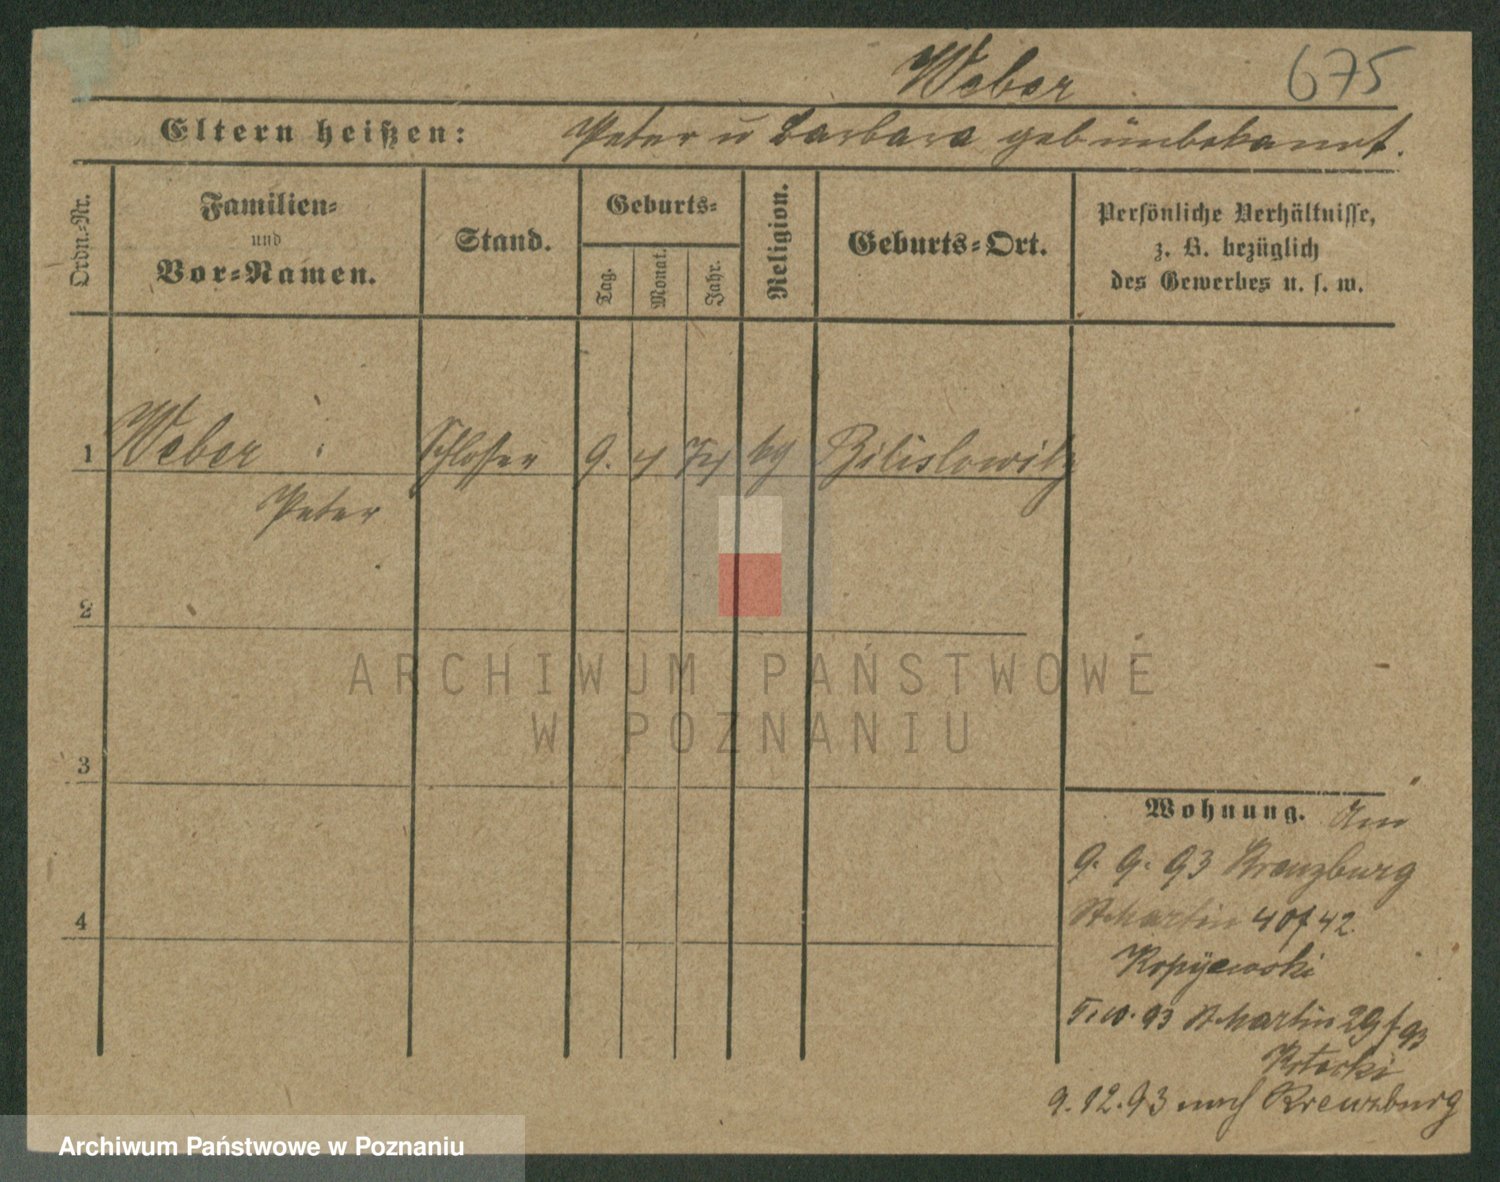 Weber 675
Eltern heißen: Peter u Barbara geb unbekannt.
Ordn.-Nr.
Familien-
und
Vor-Namen.
Stand.
Geburts-
Tag.
Monat.
Jahr.
Religion.
Geburts-Ort.
Persönliche Verhältnisse,
z. B. bezüglich
des Gewerbes u. s. w.
1 Weber Schlosser 9. 4 74 kg Bilislowitz
Peter
2
3
4
Wohnung.
9. 9. 93 Kreuzburg
St Martin 40 42
Kopijewski
93 St Martin 29
9.12.93 nach Kreuzburg
ARCHIWUM PAŃSTWOWE
W POZNANIU
Archiwum Państwowe w Poznaniu